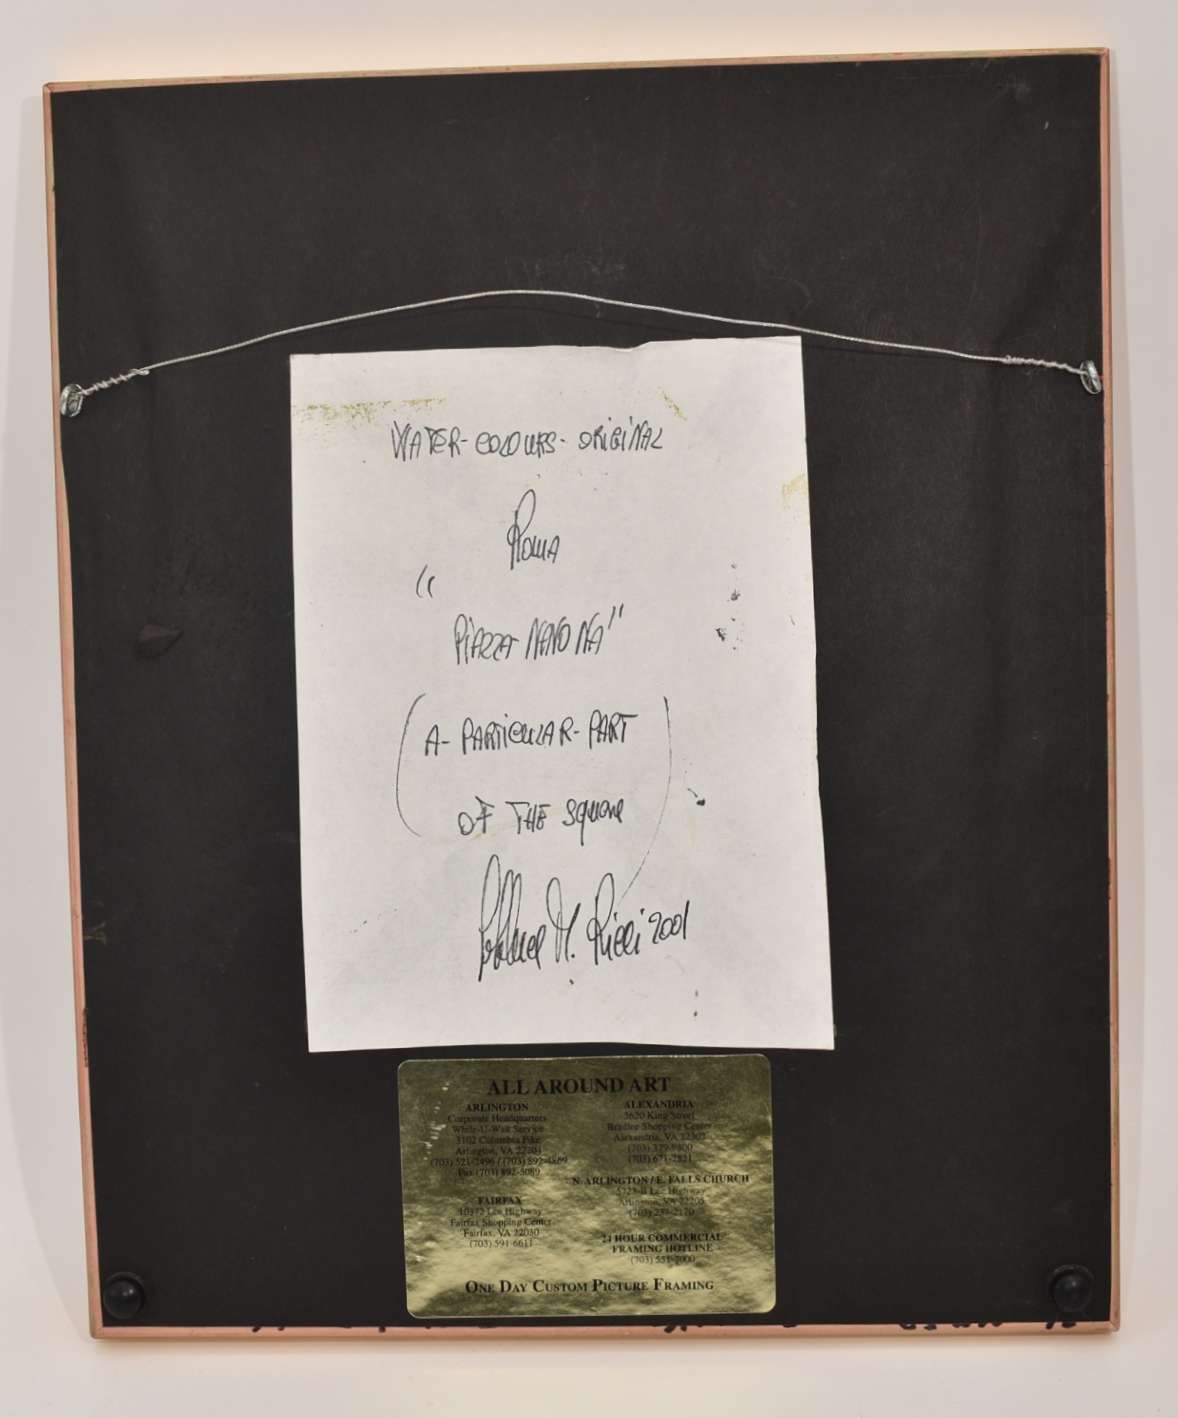 WATER-COLOURS-ORIGINAL
Roma
"
PIAZZA NAVONA"
(A-PARTICULAR-PART
OF THE SQUARE)
M. Ricci 2001
ALL AROUND ART
ARLINGTON
Corporate Headquarters
While-U-Wait Service
3102 Columbia Pike
Arlington, VA 22204
(703) 521-2496 / (703) 892-4889
Fax (703) 892-5089
FAIRFAX
10372 Lee Highway
Fairfax Shopping Center
Fairfax, VA 22030
(703) 591-6611
ALEXANDRIA
3620 King Street
Bradlee Shopping Center
Alexandria, VA 22302
(703) 379-9800
(703) 671-2821
N. ARLINGTON / E. FALLS CHURCH
Lee Highway
Arlington, VA 22205
24 HOUR COMMERCIAL
FRAMING HOTLINE
ONE DAY CUSTOM PICTURE FRAMING